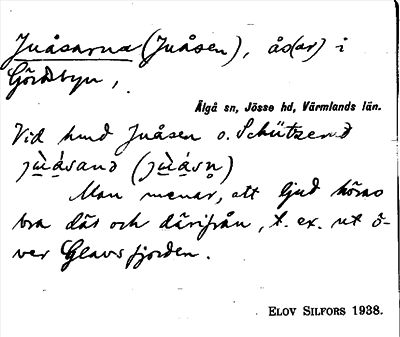 Juåsarna (Juåsen), ås(ar) i
Gördsbyn,
Älgå sn, Jösse hd, Värmlands län.
Vid hund Juåsen o. Schützend
jùásand (jùásn̥)
Man menar, att ljud höras
bra där och därifrån, t. ex. ut ö-
ver Glavsfjorden.
ELOV SILFORS 1938.